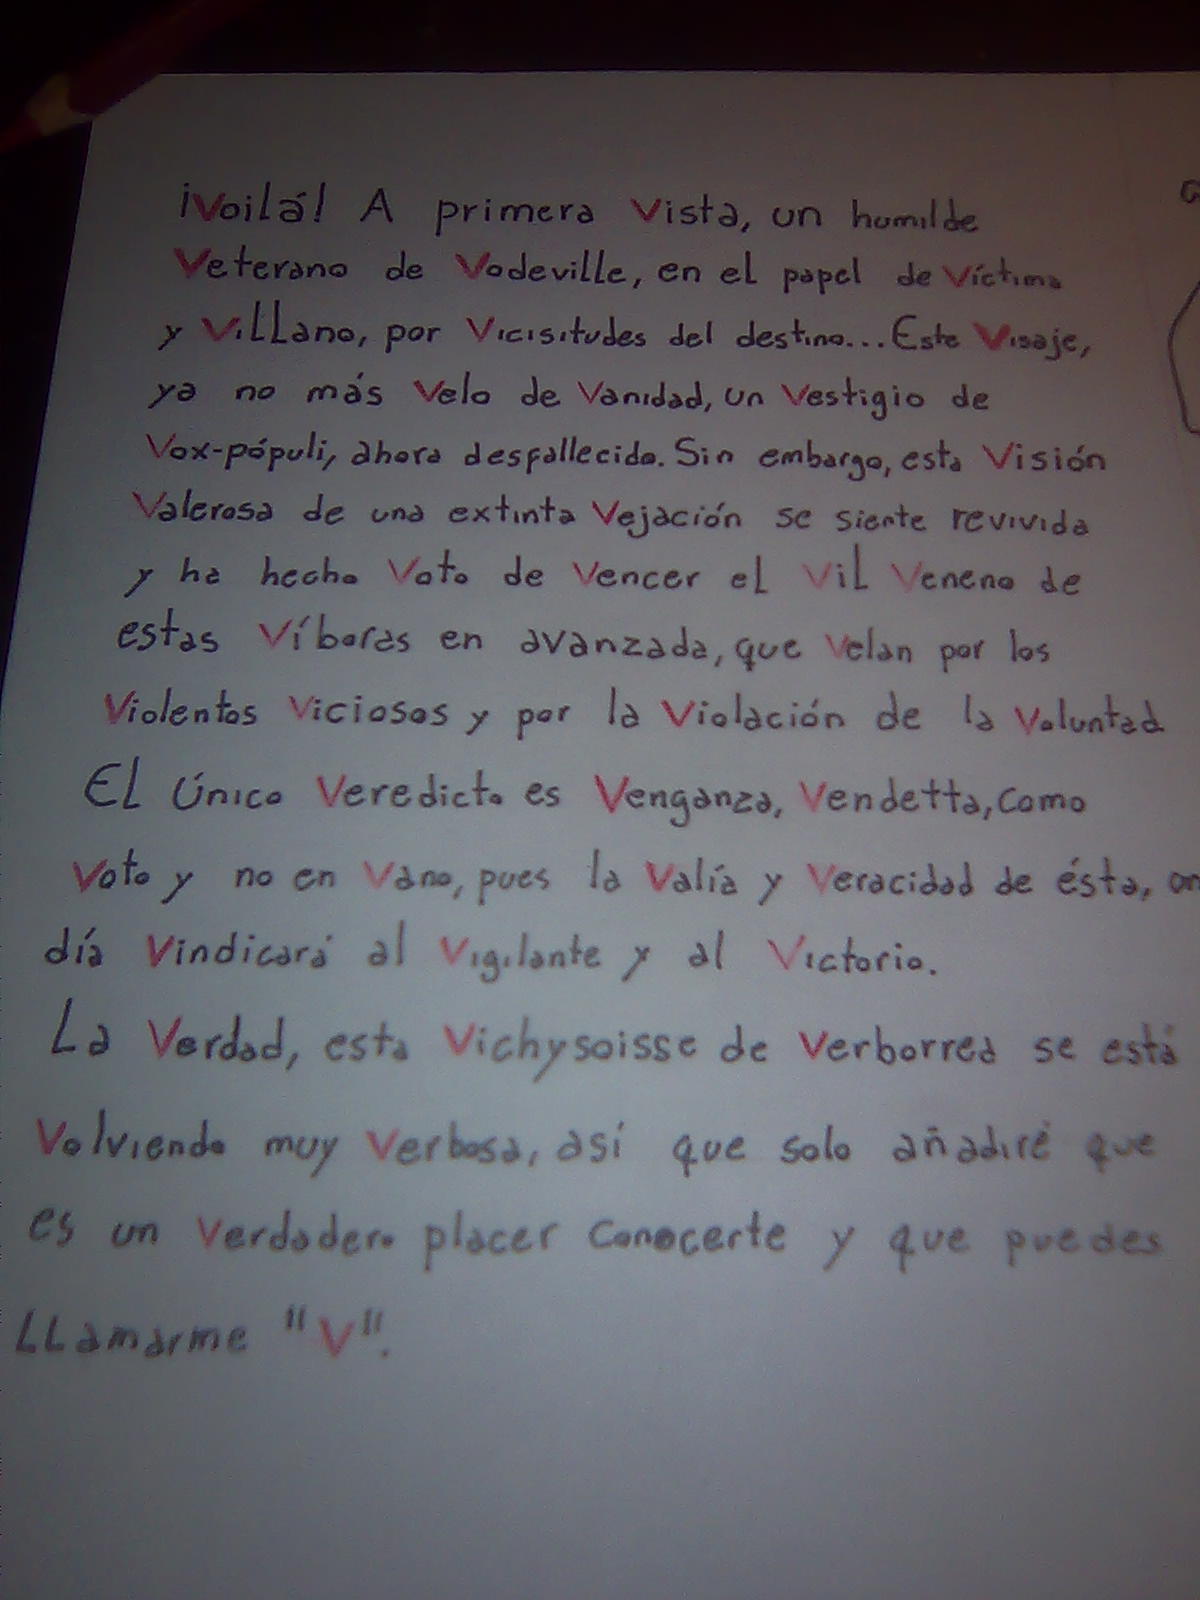 ¡Voilá! A primera Vista, un humilde
Veterano de Vodeville, en el papel de Víctima
y ViLLano, por Vicisitudes del destino... Este Visaje,
ya no más Velo de Vanidad, un Vestigio de
Vox-pópuli, ahora desfallecido. Sin embargo, esta Visión
Valerosa de una extinta Vejación se siente revivida
y ha hecho Voto de Vencer el Vil Veneno de
estas Víboras en avanzada, que Velan por los
Violentos Viciosos y por la Violación de la Voluntad
El Único Veredicto es Venganza, Vendetta, como
Voto y no en Vano, pues la Valía y Veracidad de ésta, un
día Vindicará al Vigilante y al Victorio.
La Verdad, esta Vichysoisse de Verborrea se está
Volviendo muy Verbosa, así que solo añadiré que
es un Verdadero placer conocerte y que puedes
LLamarme "V".